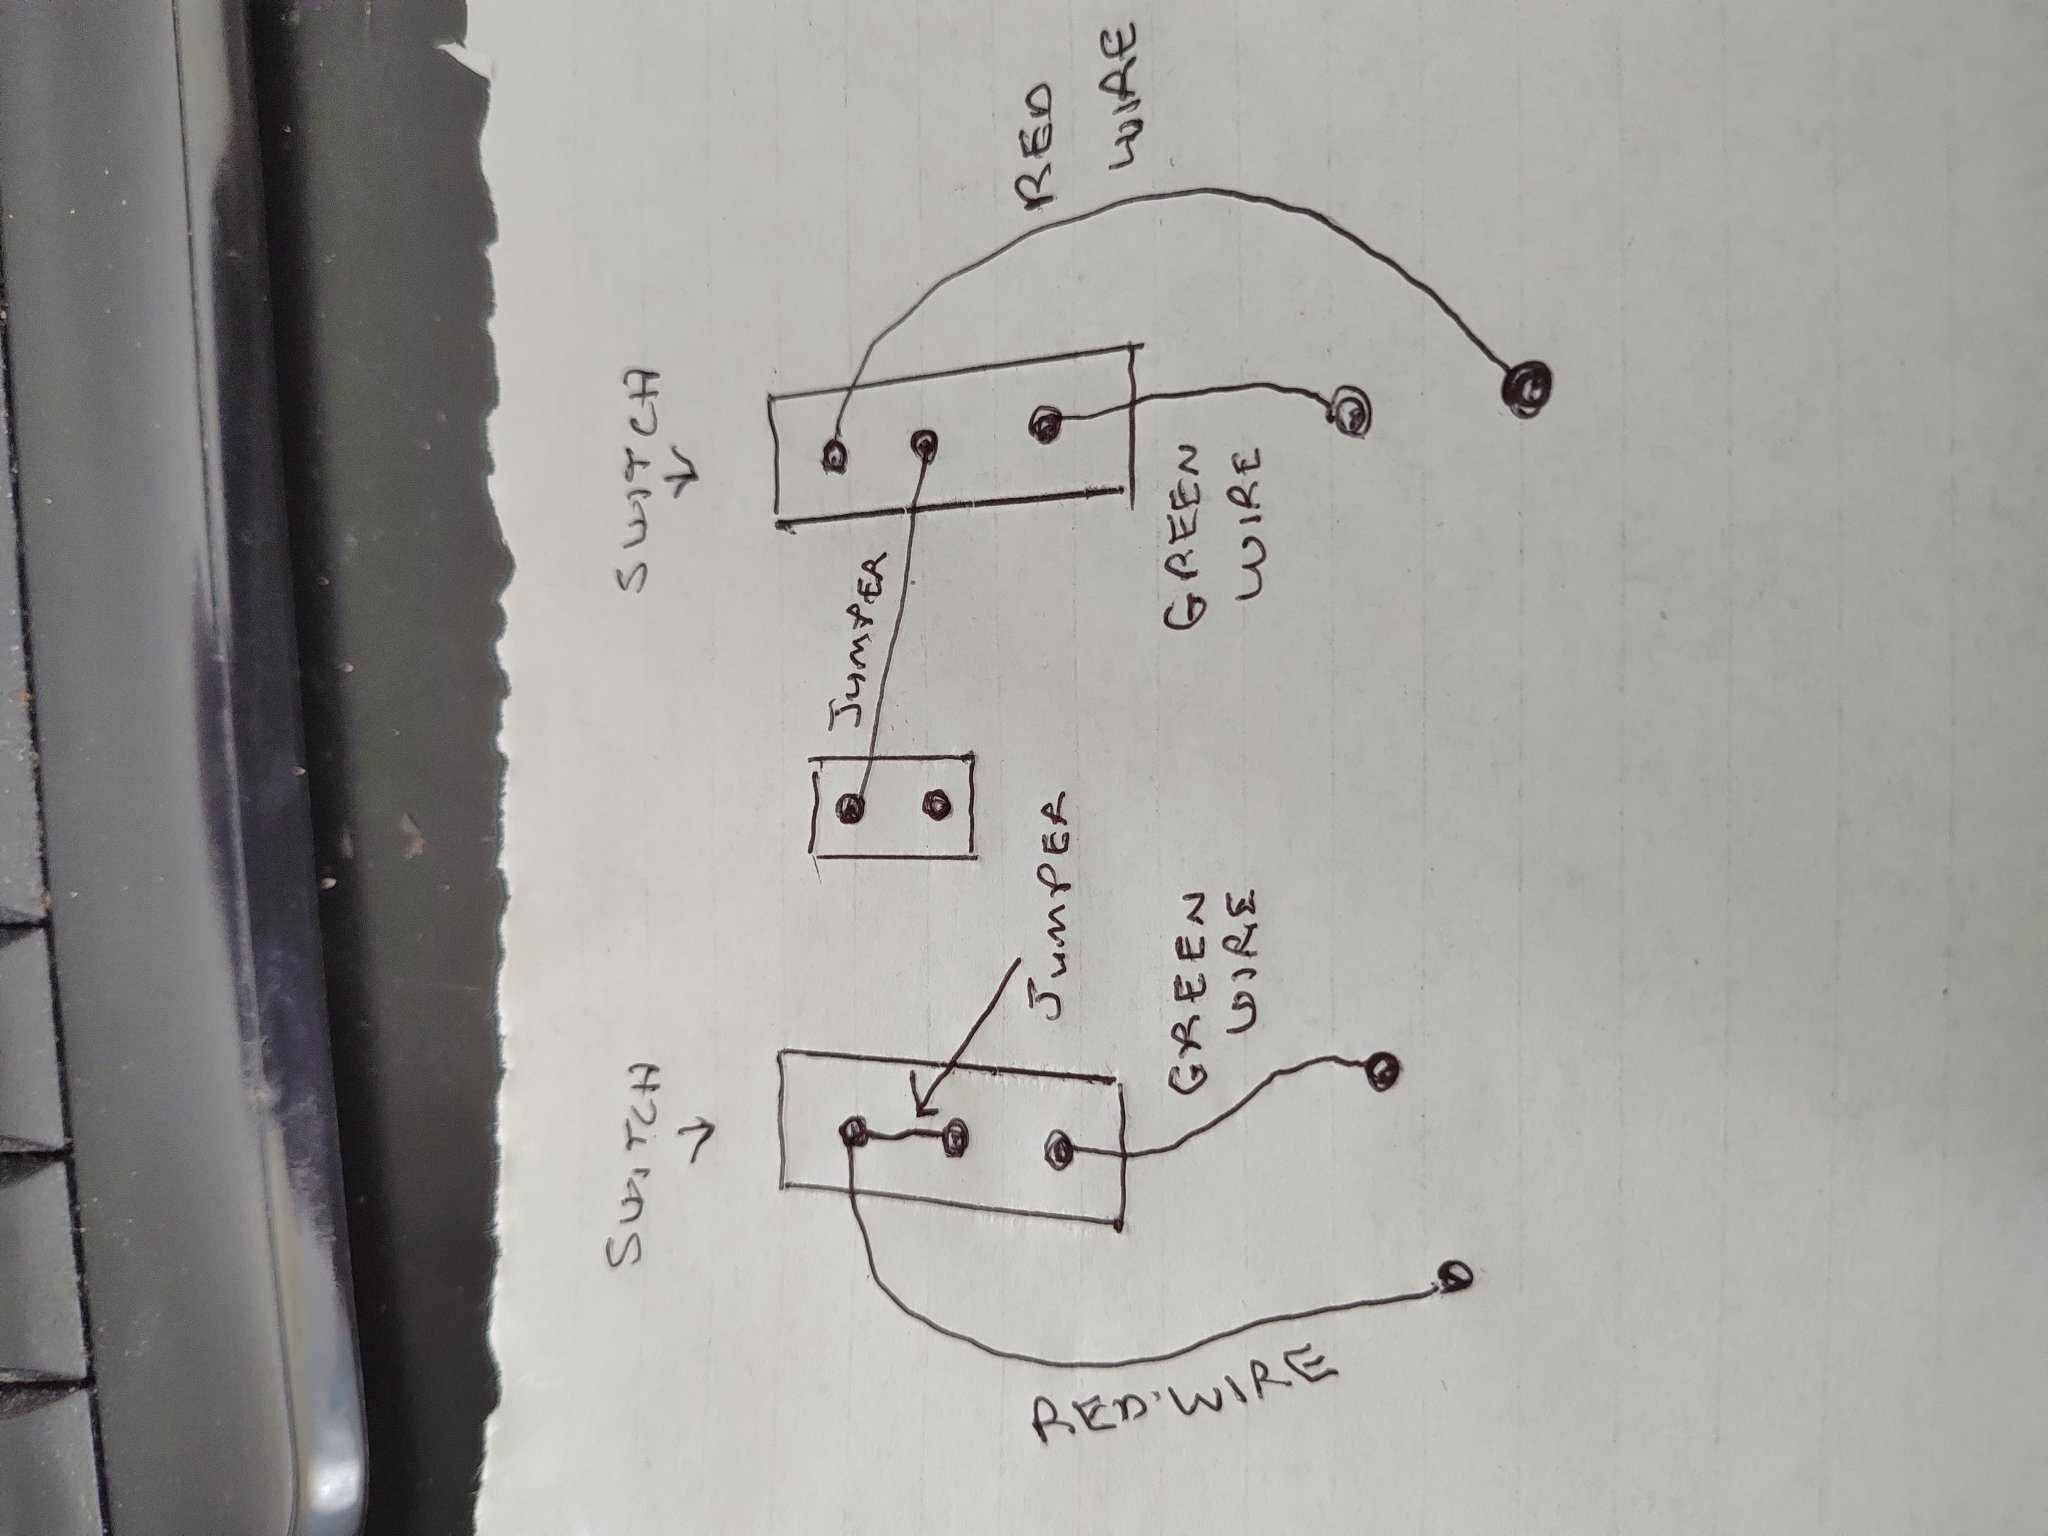 SWITCH
SWITCH
JUMPER
JUMPER
RED
WIRE
GREEN
WIRE
GREEN
WIRE
RED WIRE